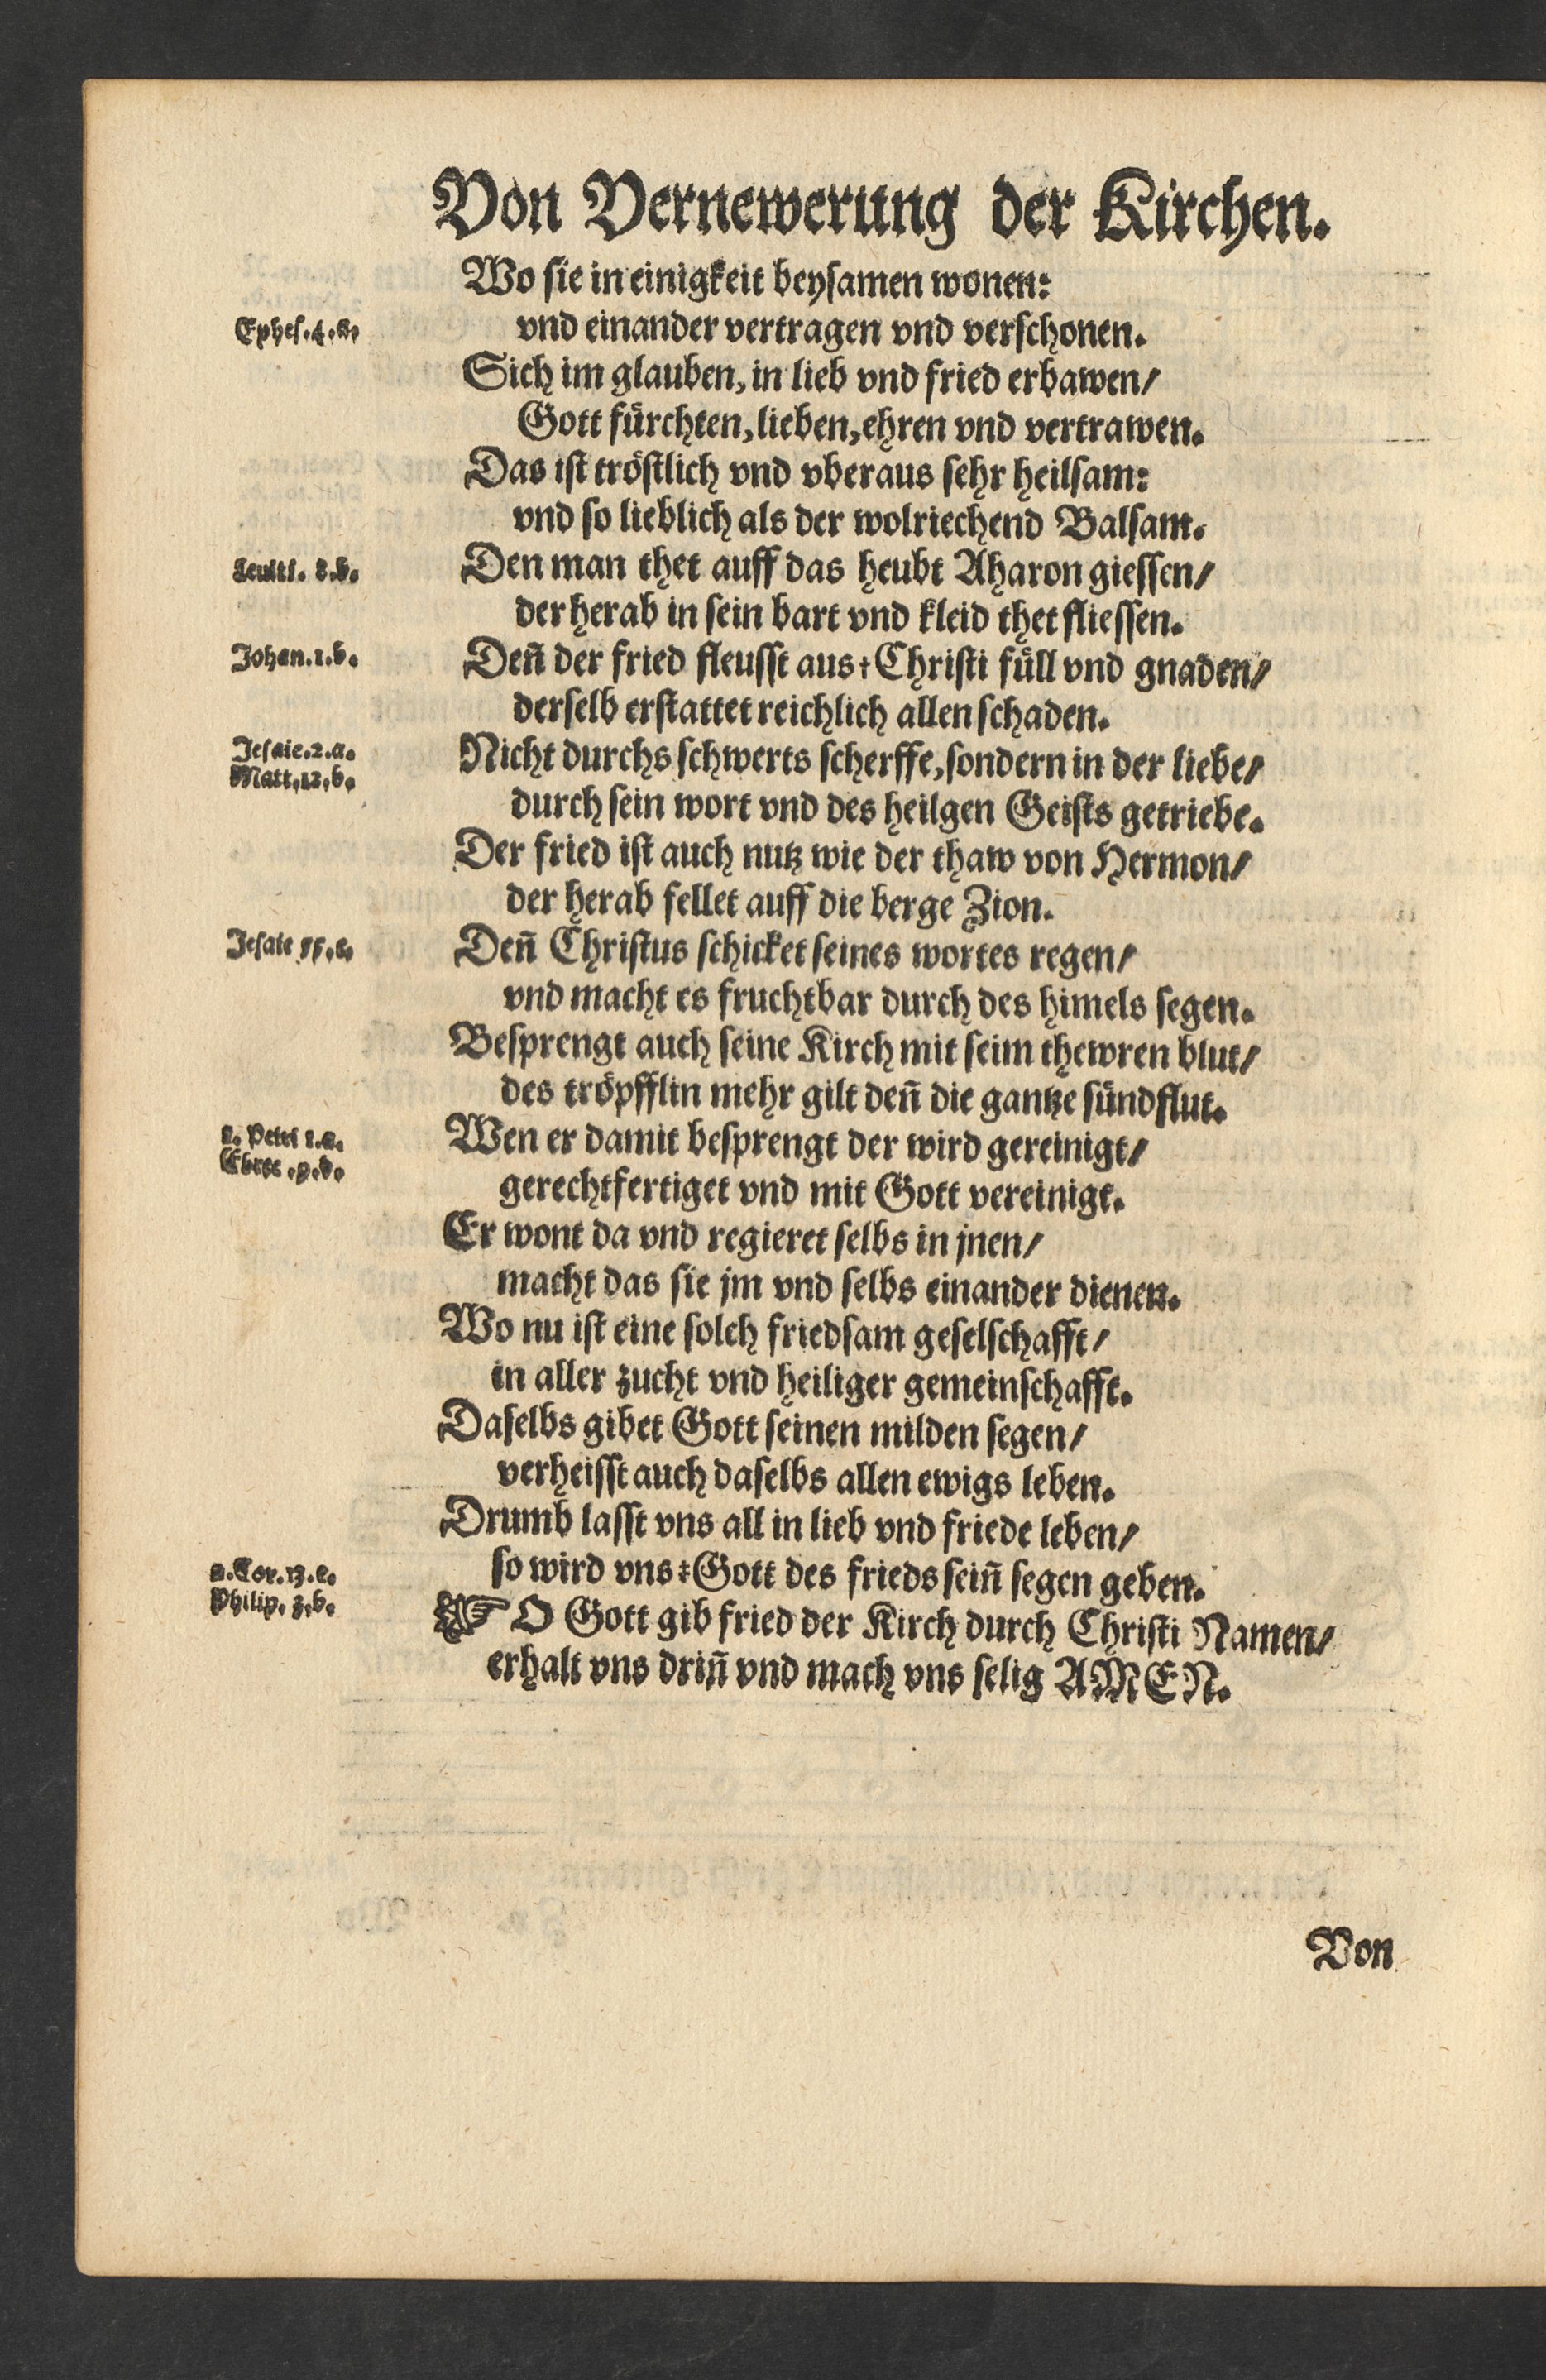 Von Vernewerung der Kirchen.
Wo sie in einigkeit beysamen wonen:
Ephes.4.a.
vnd einander vertragen vnd verschonen.
Sich im glauben, in lieb vnd fried erbawen/
Gott fürchten, lieben, ehren vnd vertrawen.
Das ist tröstlich vnd vberaus sehr heilsam:
vnd so lieblich als der wolriechend Balsam.
Leuiti. 8.b.
Den man thet auff das heubt Aharon giessen/
der herab in sein bart vnd kleid thet fliessen.
Johan.1.b.
Deñ der fried fleusst aus ‡ Christi füll vnd gnaden/
derselb erstattet reichlich allen schaden.
Jesaie.2.a.
Matt.12.b.
Nicht durchs schwerts scherffe, sondern in der liebe/
durch sein wort vnd des heilgen Geists getriebe.
Der fried ist auch nutz wie der thaw von Hermon/
der herab fellet auff die berge Zion.
Jesaie 55.c.
Deñ Christus schicket seines wortes regen/
vnd macht es fruchtbar durch des himels segen.
Besprengt auch seine Kirch mit seim thewren blut/
des tröpfflin mehr gilt deñ die gantze sündflut.
1. Petri 1.a.
Ebree .9.d.
Wen er damit besprengt der wird gereinigt/
gerechtfertiget vnd mit Gott vereinigt.
Er wont da vnd regieret selbs in jnen/
macht das sie jm vnd selbs einander dienen.
Wo nu ist eine solch friedsam geselschafft/
in aller zucht vnd heiliger gemeinschafft.
Daselbs gibet Gott seinen milden segen/
verheisst auch daselbs allen ewigs leben.
Drumb lasst vns all in lieb vnd friede leben/
2.Cor.13.c.
Philip. 3.b.
so wird vns ‡ Gott des frieds seiñ segen geben.
☞ O Gott gib fried der Kirch durch Christi Namen/
erhalt vns driñ vnd mach vns selig AMEN.
Von